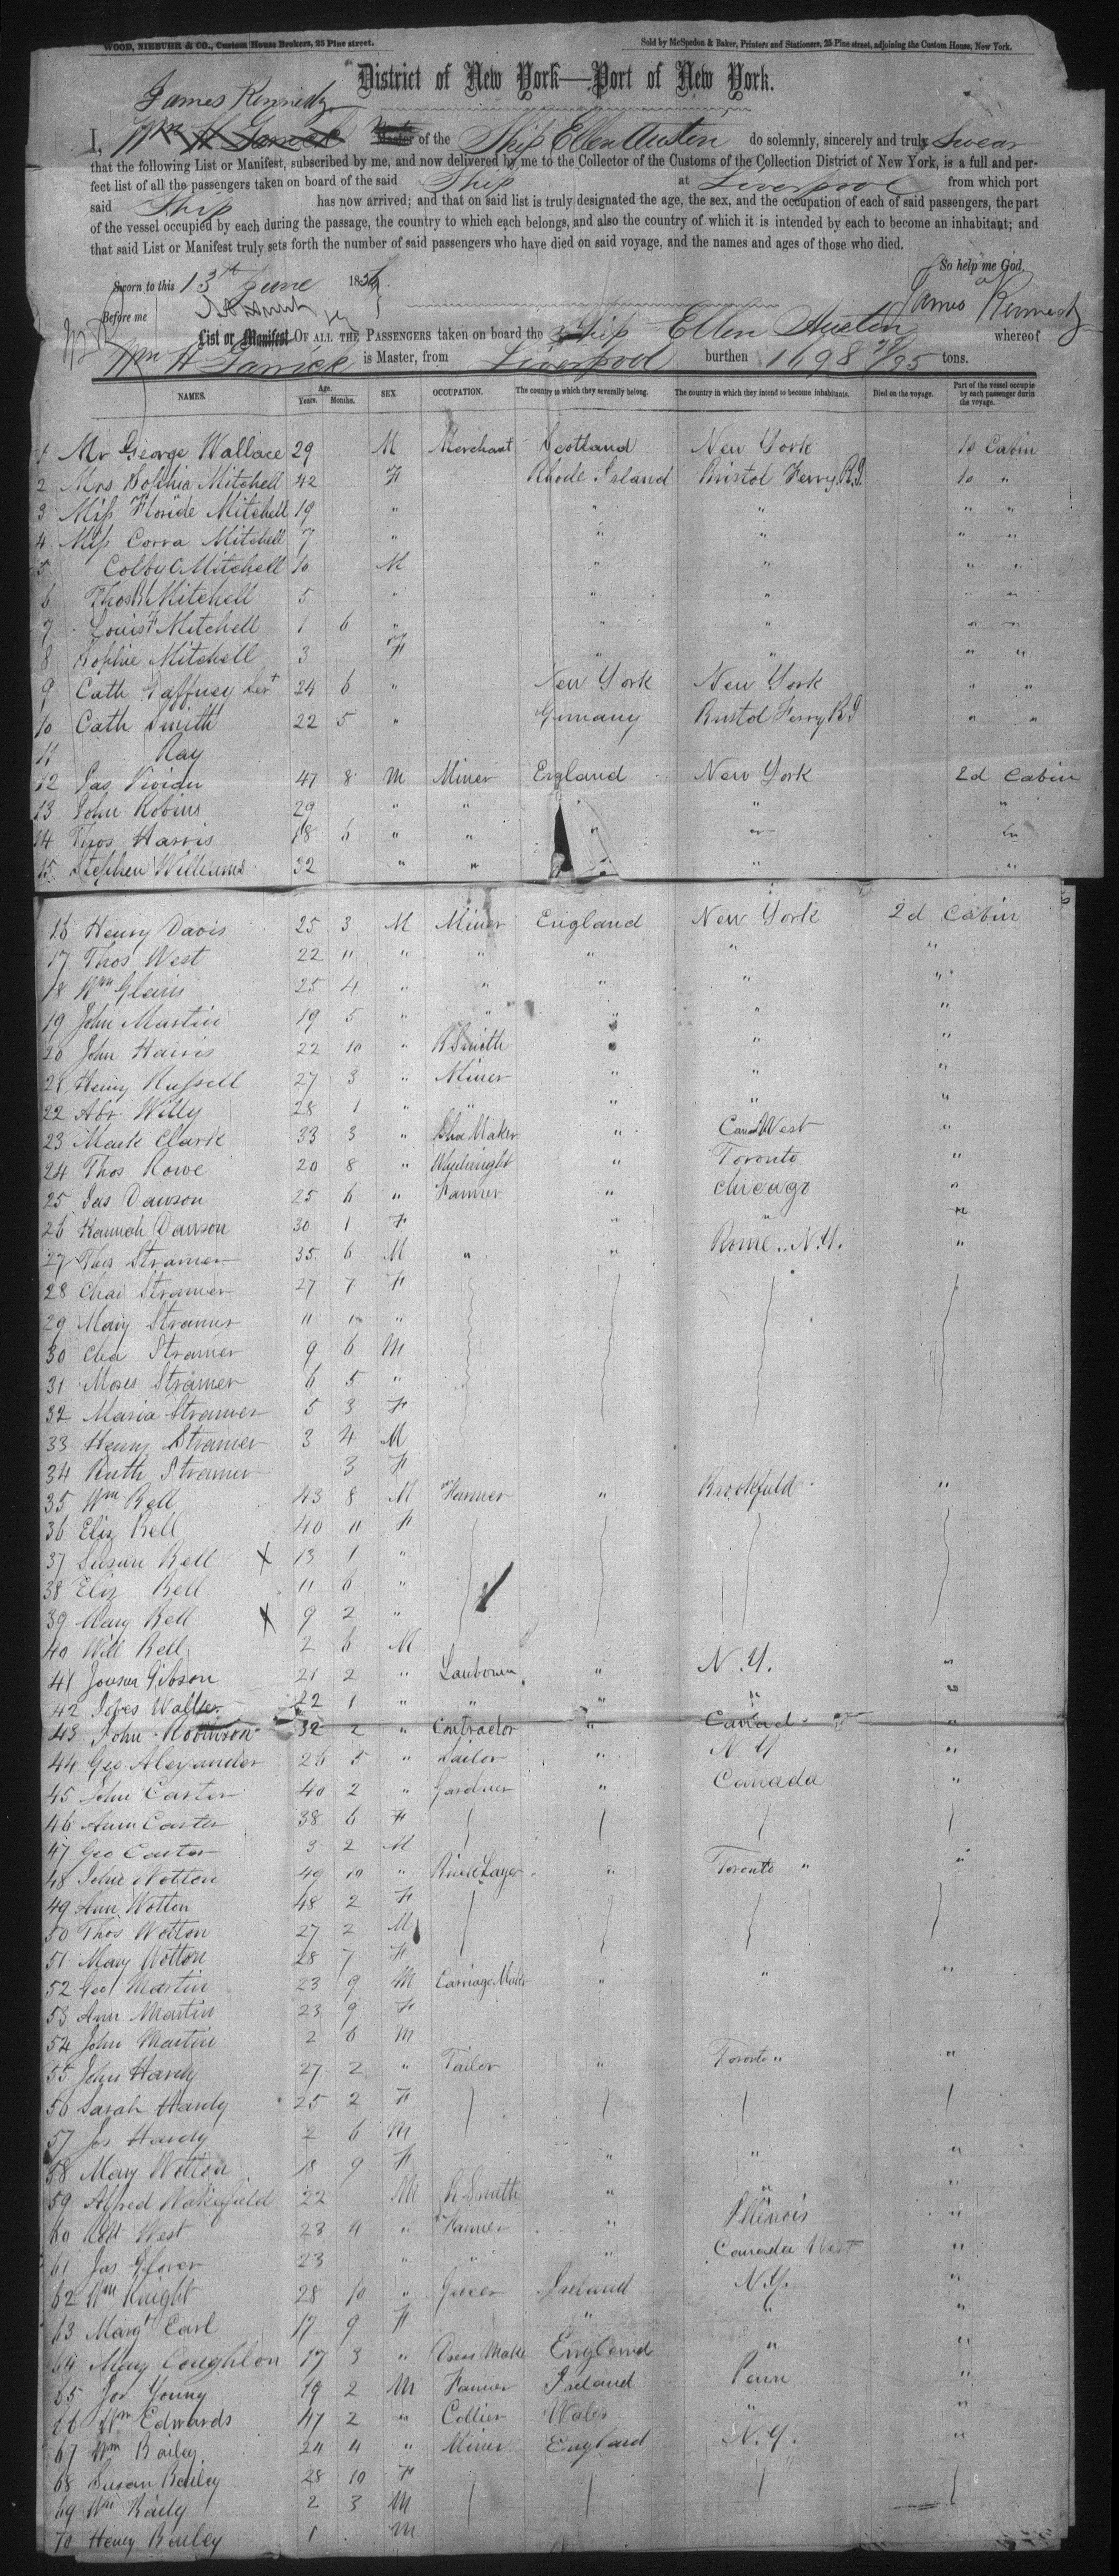 WOOD, NIEBUHR & CO., Custom House Brokers, 25 Pine street. Sold by McSpedon & Baker, Printers and Stationers, 25 Pine street, adjoining the Custom House, New York.
District of New York—Port of New York.
James Kennedy
I, Wm H Garrick Master of the Ship Ellen Austin do solemnly, sincerely and truly swear
that the following List or Manifest, subscribed by me, and now delivered by me to the Collector of the Customs of the Collection District of New York, is a full and per-
fect list of all the passengers taken on board of the said Ship at Liverpool from which port
said Ship has now arrived; and that on said list is truly designated the age, the sex, and the occupation of each of said passengers, the part
of the vessel occupied by each during the passage, the country to which each belongs, and also the country of which it is intended by each to become an inhabitant; and
that said List or Manifest truly sets forth the number of said passengers who have died on said voyage, and the names and ages of those who died.
So help me God.
Sworn to this 13th June 1856
James Kennedy
Before me
List or Manifest OF ALL THE PASSENGERS taken on board the Ship Ellen Austin whereof
Wm H Garrick is Master, from Liverpool burthen 1698 /95 tons.
NAMES. Age. Years. Months. SEX OCCUPATION. The country to which they severally belong. The country in which they intend to become inhabitants. Died on the voyage. Part of the vessel occupied by each passenger during the voyage.
1 Mr George Wallace 29 M Merchant Scotland New York 1s Cabin
2 Mrs Sophia Mitchell 42 F Rhode Island Bristol Ferry R.I. 1s "
3 Miss Floride Mitchell 19 " " " " "
4 Miss Corra Mitchell 7 " " " " "
5 Colby C Mitchell 10 M " " " "
6 Thos R Mitchell 5 " " " " "
7 Louis F Mitchell 1 6 " " " " "
8 Sophie Mitchell 3 F " " " "
9 Cath Gaffney Sert 24 6 " New York New York " "
10 Cath Smith 22 5 " Germany Bristol Ferry R I " "
11 Ray
12 Jas Vivian 47 8 M Miner England New York 2d Cabin
13 John Robins 29 " " " "
14 Thos Harris 18 6 " " " " "
15 Stephen Williams 32 " " " "
16 Henry Davis 25 3 M Miner England New York 2d Cabin
17 Thos West 22 11 " " " " "
18 Wm Glavis 25 4 " " " " "
19 John Martin 19 5 " " " " "
20 John Harris 22 10 " B Smith " " "
21 Henry Russell 27 3 " Miner " " "
22 Abr Willy 28 1 " " " " "
23 Mark Clark 33 3 " Shoe Maker " Canada West "
24 Thos Rowe 20 8 " Wheelwright " Toronto "
25 Jas Dawson 25 6 " Farmer " Chicago "
26 Hannah Dawson 30 1 F " " "
27 Thos Stramer 35 6 M " " Rome N.Y. "
28 Char Stramer 27 7 F
29 Mary Stramer 11 10 "
30 Cha Stramer 9 6 M
31 Moses Stramer 6 5 "
32 Maria Stramer 5 3 F
33 Henry Stramer 3 4 M
34 Ruth Stramer 3 F
35 Wm Bell 43 8 M Farmer " Brookfield "
36 Eliz Bell 40 11 F
37 Susan Bell X 13 1 "
38 Eliz Bell 11 6 "
39 Mary Bell X 9 2 "
40 Will Bell 2 6 M
41 Gibson 21 2 " " N.Y. "
42 Walter 22 1 " " " " "
43 John Robinson 32 2 " Contractor " Canad "
44 Geo Alexander 26 5 " Sailor " N Y "
45 John Carter 40 2 " Gardner " Canada "
46 Ann Carter 38 6 F
47 Geo Carter 3 2 M
48 John Wotton 49 10 " Brick Layer " Toronto " "
49 Ann Wotton 48 2 F
50 Thos Wotton 27 2 M
51 Mary Wotton 28 7 F
52 Geo Martin 23 9 M Carriage Maker " " "
53 Ann Martin 23 9 F
54 John Martin 2 6 M
55 John Hardy 27 2 " Tailor " Toronto " "
56 Sarah Hardy 25 2 F
57 Jos Hardy 2 6 M
58 Mary Wotton 18 9 F " " "
59 Alfred Wakefield 22 M B Smith " " "
60 Robt West 23 4 " Farmer " Illinois "
61 Jas Glover 23 " " " Canada West "
62 Wm Knight 28 10 " Grocer Ireland N.Y. "
63 Margt Earl 17 9 F " " "
64 Mary Coughlon 17 3 " Dress Make England " "
65 Jos Young 19 2 M Farmer Ireland Penn "
66 Wm Edwards 47 2 " Collier Wales " "
67 Wm Bailey 24 4 " Miner England N.Y. "
68 Susan Bailey 28 10 F
69 Wm Baily 2 3 M
70 Henry Bailey 1 M